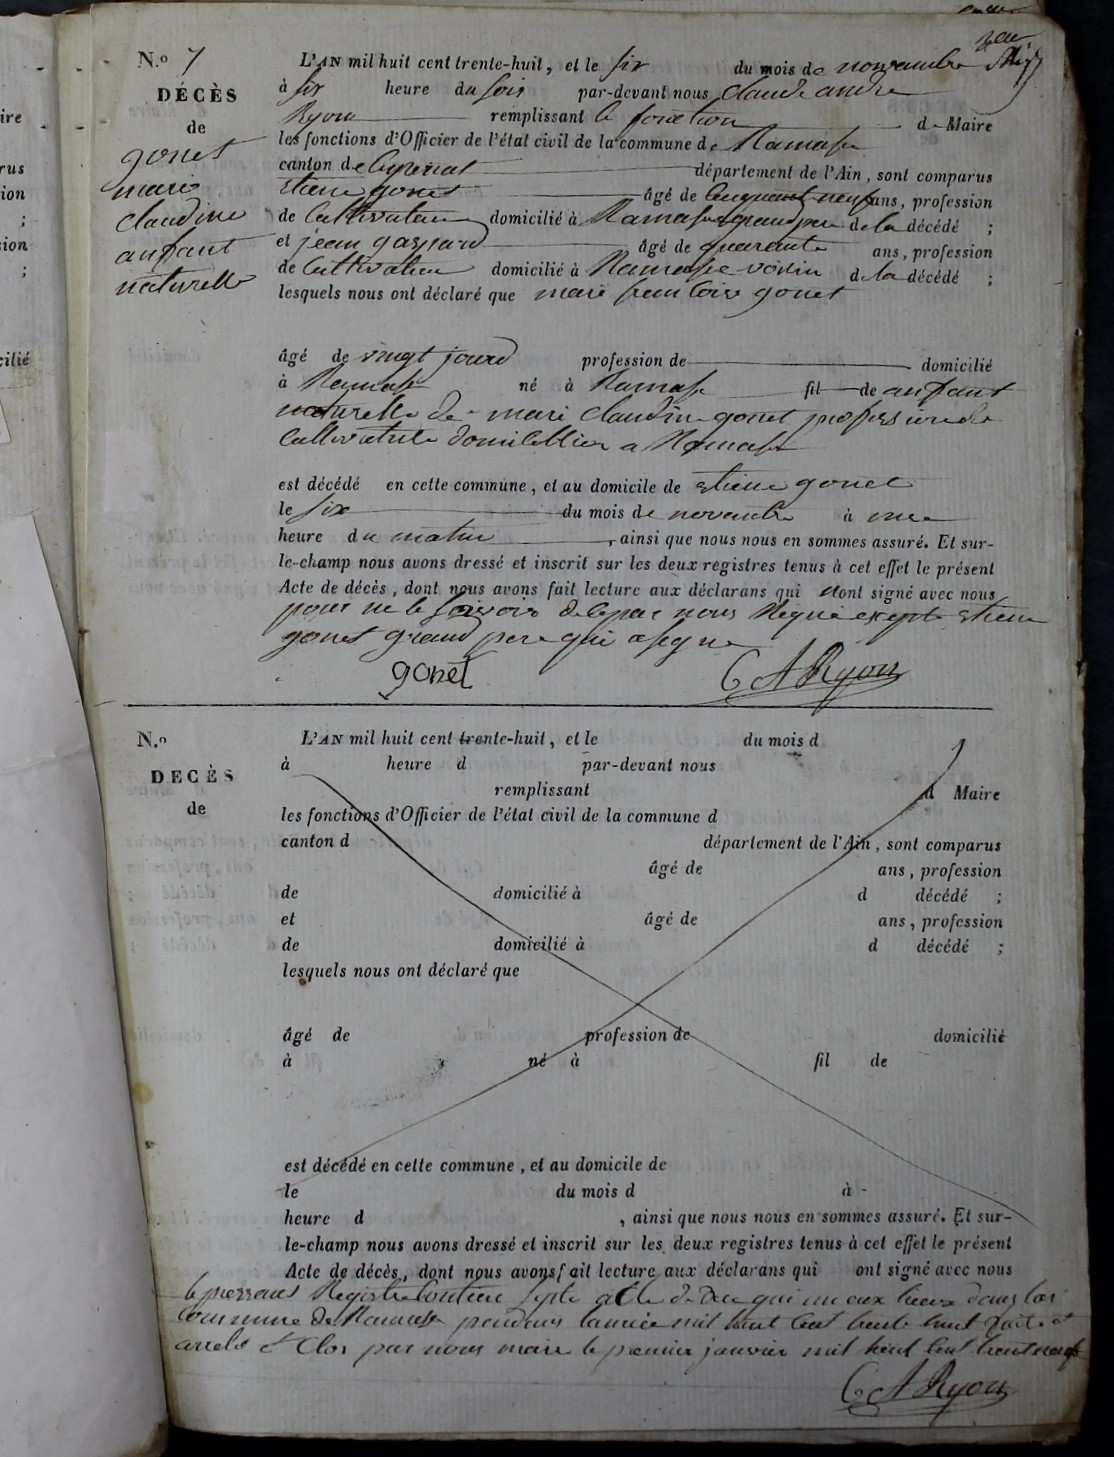 N.º 7
DÉCÈS
de
gonet
marie
claudine
anfant
naturelle
L'AN mil huit cent trente-huit, et le six du mois de novembre
à six heure du soir par-devant nous claude andre
Ryon remplissant le fonction de Maire
les fonctions d'Officier de l'état civil de la commune de Ramasse
canton de Ceyzeriat département de l'Ain, sont comparus
etiene gonet âgé de cinquant neuf ans, profession
de Cultivateur domicilié à Ramasse grand pere de la décédé ;
et jean gaspard âgé de quarante ans, profession
de Cultivateur domicilié à Ramasse voisin de la décédé ;
lesquels nous ont déclaré que marie gonet
âgé de vingt jours profession de domicilié
à Ramasse né à Ramasse fil de anfant
naturelle de marie claudine gonet profession de
Cultivatrice a Ramasse
est décédé en cette commune, et au domicile de etiene gonet
le six du mois de novembre à une
heure du matin, ainsi que nous nous en sommes assuré. Et sur-
le-champ nous avons dressé et inscrit sur les deux registres tenus à cet effet le présent
Acte de décès, dont nous avons fait lecture aux déclarans qui nont signé avec nous
pour ne le savoir nous etiene
gonet grand pere qui a segne
gonet C A Ryon
N.º
DECÈS
de
L'AN mil huit cent trente-huit, et le du mois d
à heure d par-devant nous
remplissant d Maire
les fonctions d'Officier de l'état civil de la commune d
canton d département de l'Ain, sont comparus
âgé de ans, profession
de domicilié à d décédé ;
et âgé de ans, profession
de domicilié à d décédé ;
lesquels nous ont déclaré que
âgé de profession de domicilié
à né à fil de
est décédé en cette commune, et au domicile de
le du mois d à
heure d , ainsi que nous nous en sommes assuré. Et sur-
le-champ nous avons dressé et inscrit sur les deux registres tenus à cet effet le présent
Acte de décès, dont nous avons fait lecture aux déclarans qui ont signé avec nous
le Registre sept acte de qui
commune de Ramasse mil huit cent trente huit
et Clos par nous maire le premier janvier mil huit cent trent neuf
C A Ryon